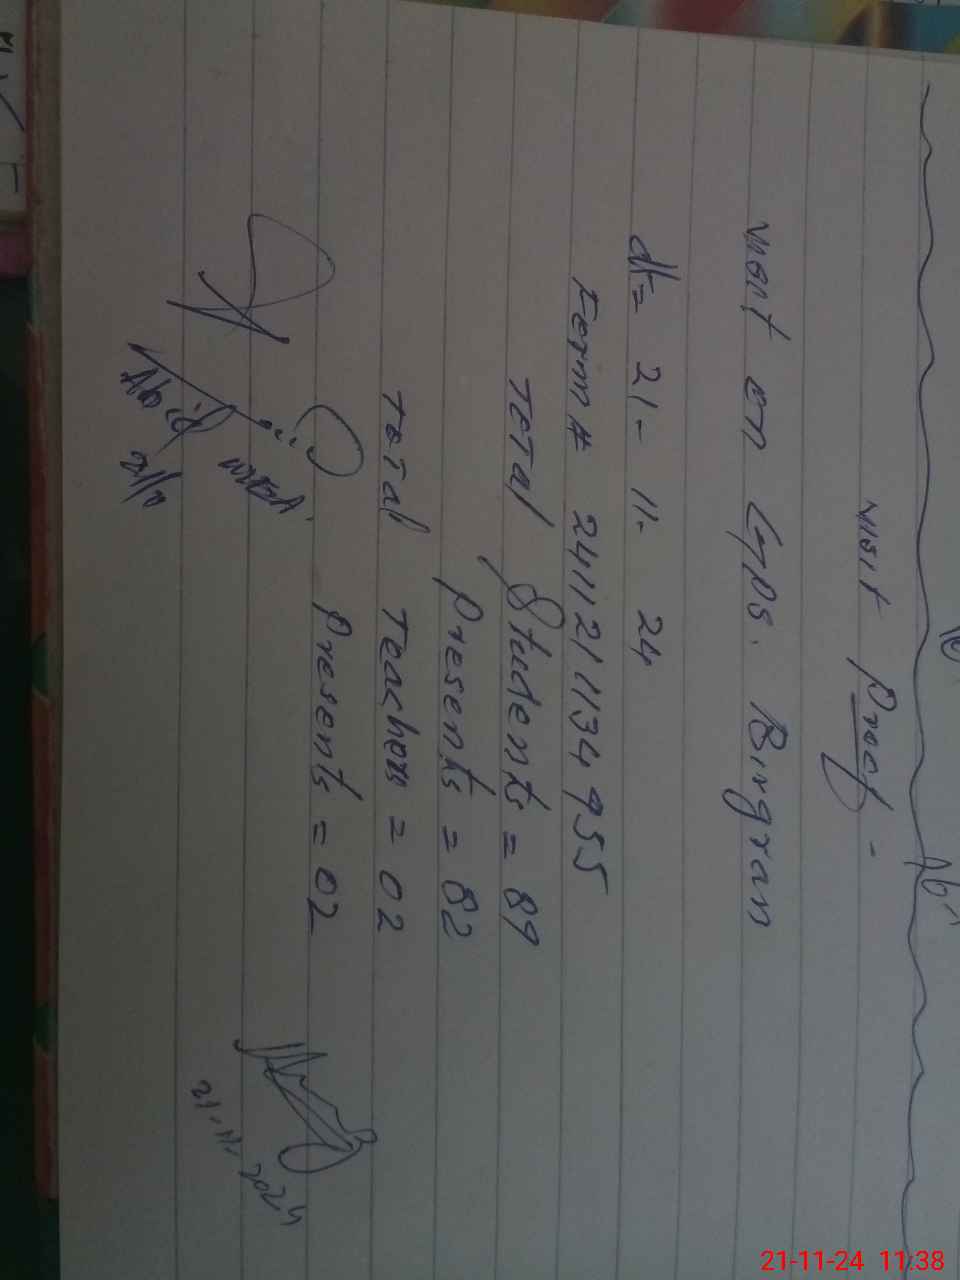 Visit Proof -
Visit on Gps. Bingran
dt= 21- 11- 24
Form # 241121 1134 955
Total Students = 89
Presents = 82
Total Teachers = 02
Presents = 02
Abid
21-11-2024
21-11-24 11:38